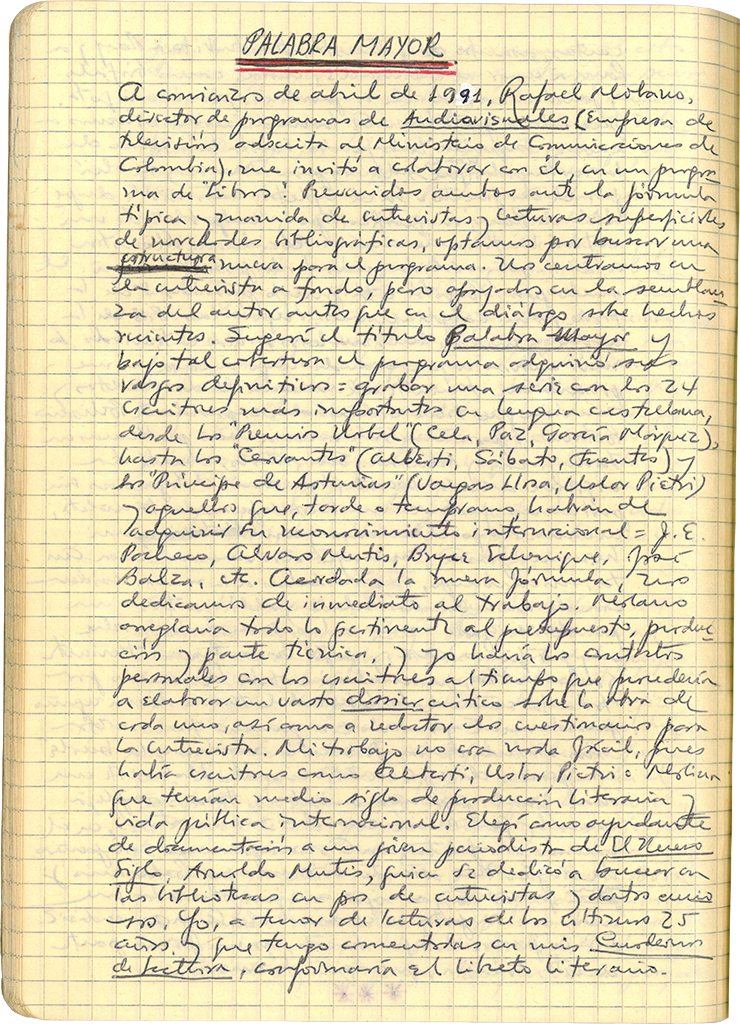 PALABRA MAYOR
A comienzos de abril de 1991, Rafael Molano,
director de programas de Audiovisuales (Empresa de
televisión adscrita al Ministerio de Comunicaciones de
Colombia), me invitó a colaborar con él, en un progra-
ma de "Libros". Prevenidos ambos ante la fórmula
típica y manida de entrevistas y lecturas superficiales
de novedades bibliográficas, optamos por buscar una
estructura nueva para el programa. Nos centramos en
la entrevista a fondo, pero apoyados en la semblan-
za del autor antes que en el diálogo sobre hechos
recientes. Sugerí el título Palabra Mayor y
bajo tal cobertura el programa adquirió sus
rasgos definitivos = grabar una serie con los 24
escritores más importantes en lengua castellana,
desde los "Premios Nobel" (Cela, Paz, García Márquez),
hasta los "Cervantes" (Alberti, Sábato, Fuentes) y
los "Príncipe de Asturias" (Vargas Llosa, Uslar Pietri)
y aquellos que, tarde o temprano, habrán de
adquirir su reconocimiento internacional = J. E.
Pacheco, Alvaro Mutis, Bryce Echenique, José
Balza, etc. Acordada la nueva fórmula, nos
dedicamos de inmediato al trabajo. Molano
arreglaría todo lo pertinente al presupuesto, produc-
ción y parte técnica, y yo haría los contactos
personales con los escritores al tiempo que procedería
a elaborar un vasto dossier crítico sobre la obra de
cada uno, así como a redactar los cuestionarios para
la entrevista. Mi trabajo no era nada fácil, pues
había escritores como Alberti, Uslar Pietri o Molina
que tenían medio siglo de producción literaria y
vida pública internacional. Elegí como ayudante
de documentación a un joven periodista de El Nuevo
Siglo, Arnoldo Mutis, quien se dedicó a buscar en
las bibliotecas en pos de entrevistas y datos
Yo, a tenor de lecturas de los últimos 25
años y que tengo comentadas en mis Cuadernos
de Lectura, conformaría el libreto literario.